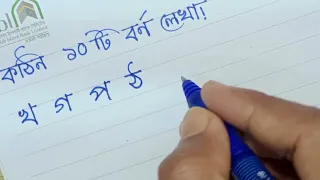 কঠিন ১০টি বর্ন লেখা!
খ গ প ঠ